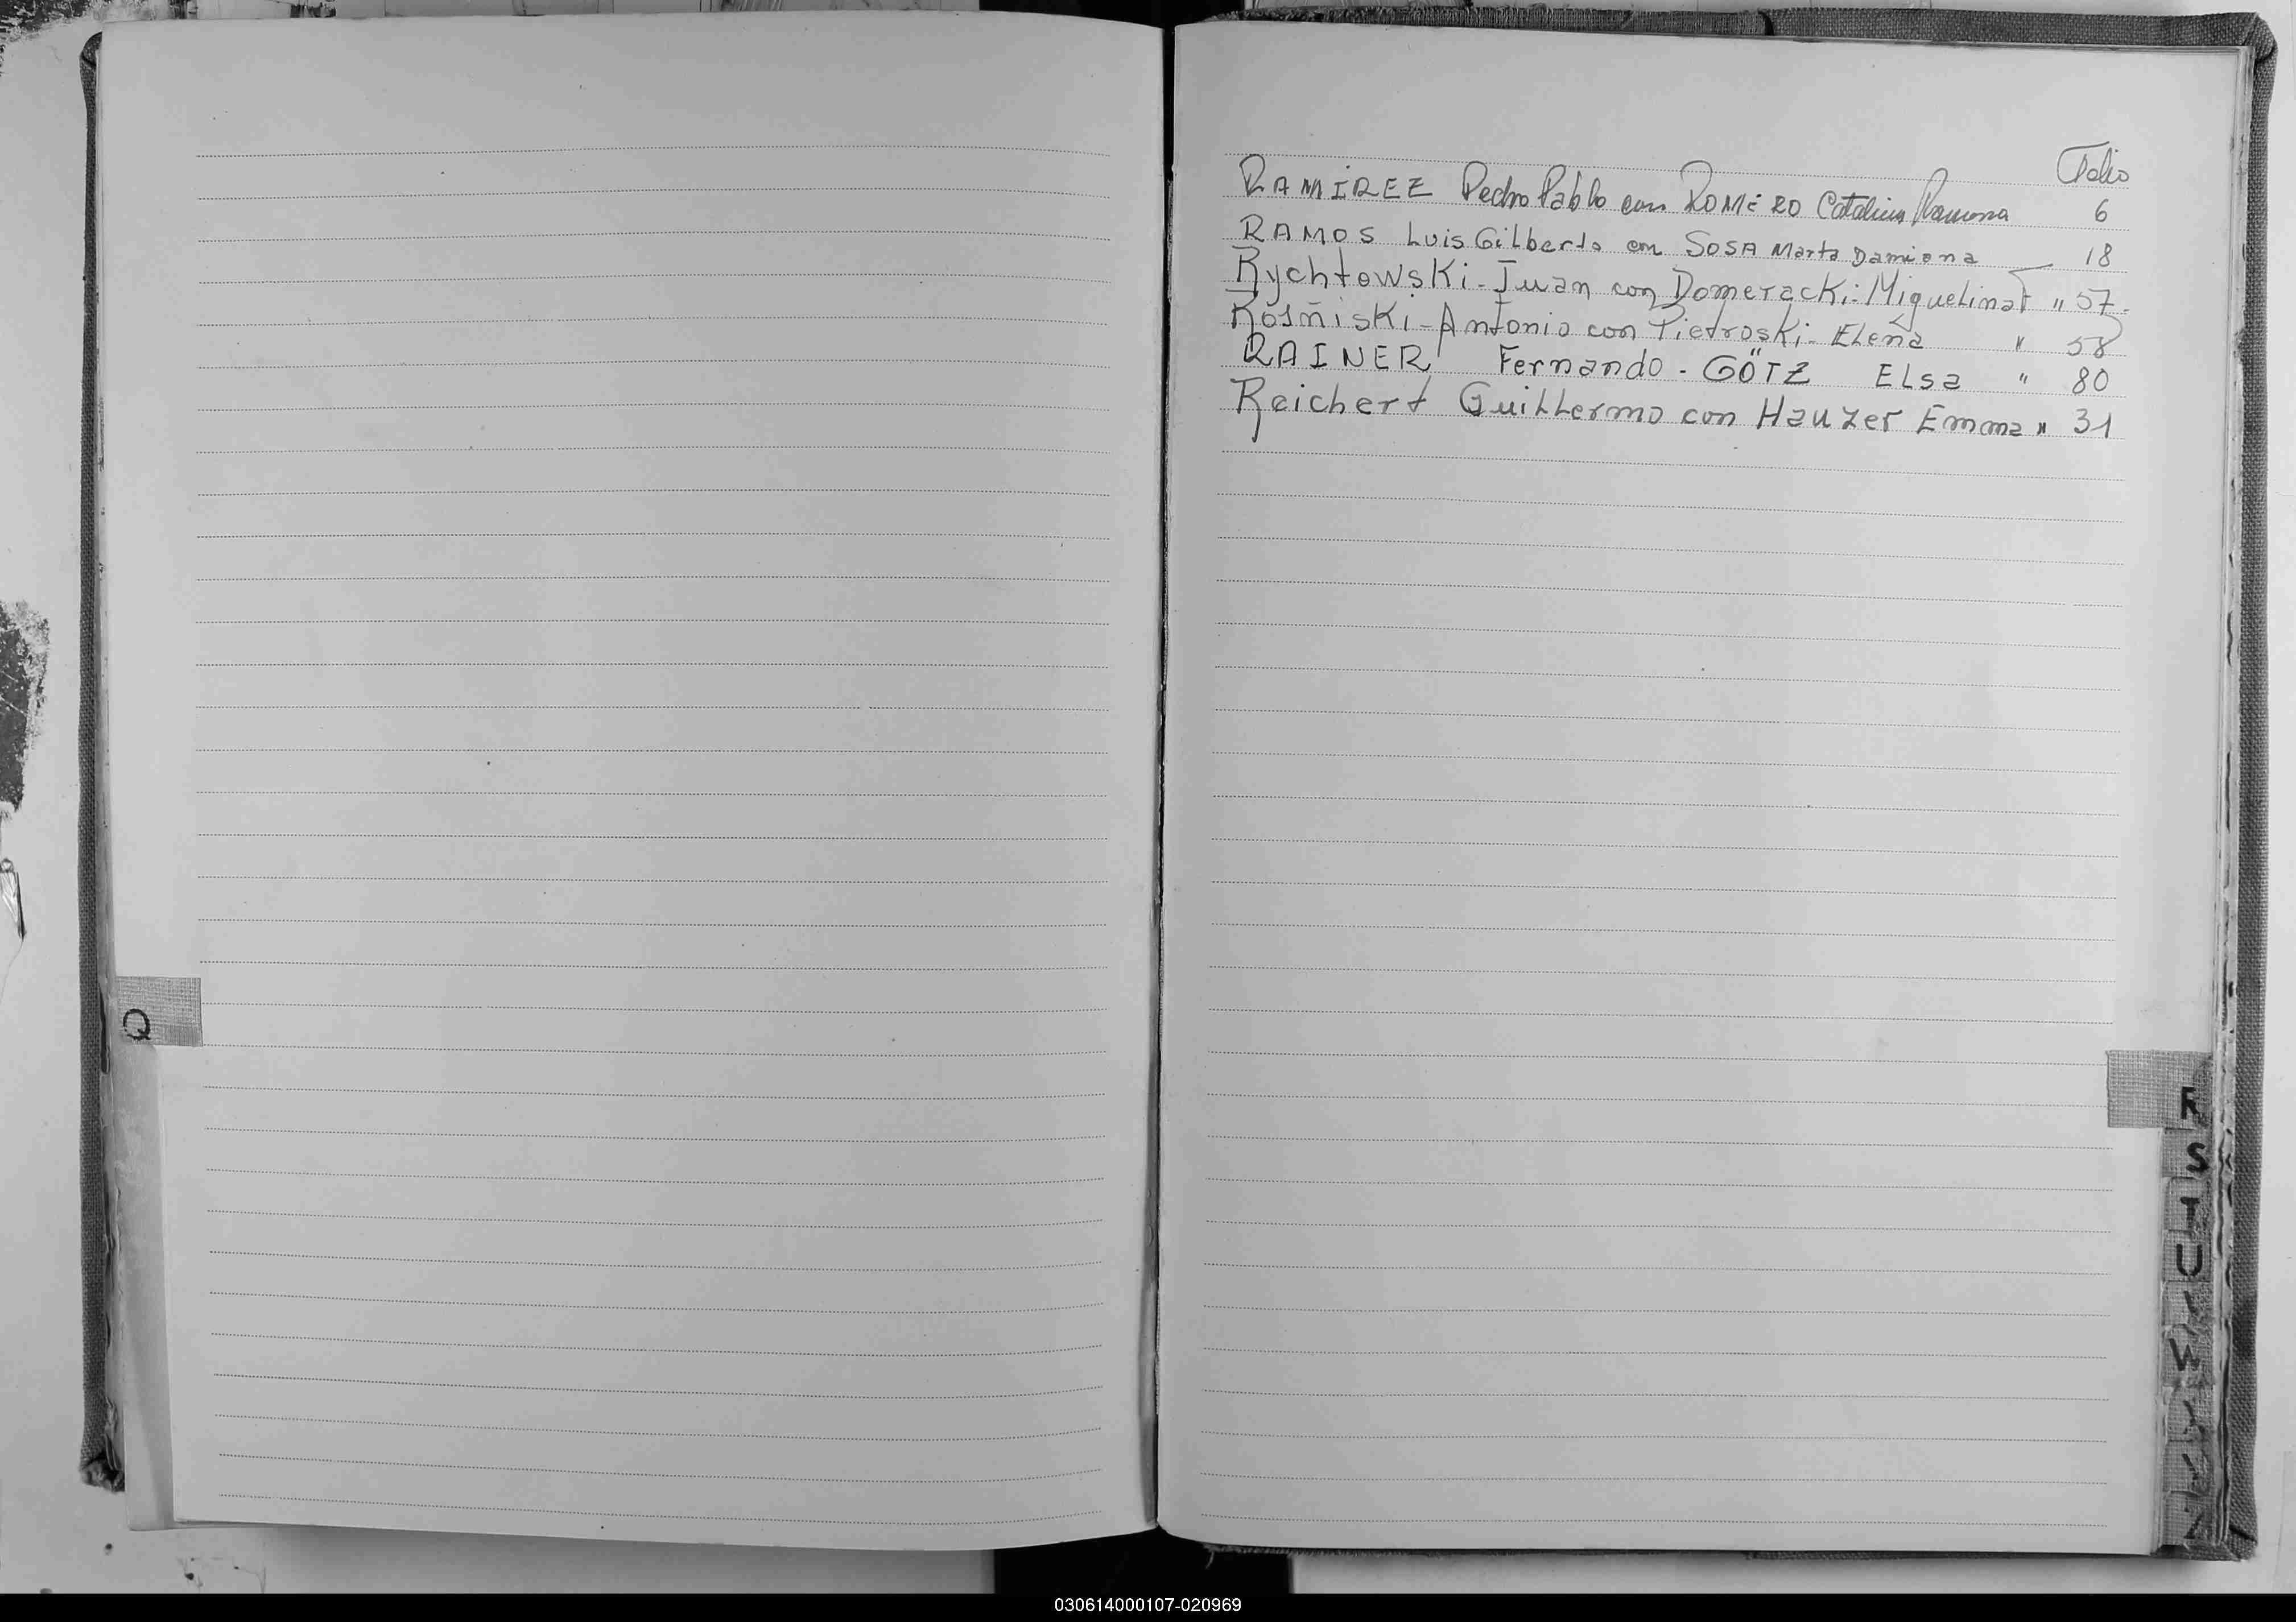 Folio
RAMÍREZ Pedro Pablo con ROMERO Catalina Ramona 6
RAMOS Luis Gilberto con SOSA Marta Damiana 18
Rychtowski - Juan con Domeracki - Miguelina F " 57 -
Rosñiski - Antonio con Pietroski - Elena " 58
RAINER Fernando - GÖTZ Elsa " 80
Reichert Guillermo con Hauzer Emma " 31
Q
R
S
T
U
W
030614000107-020969